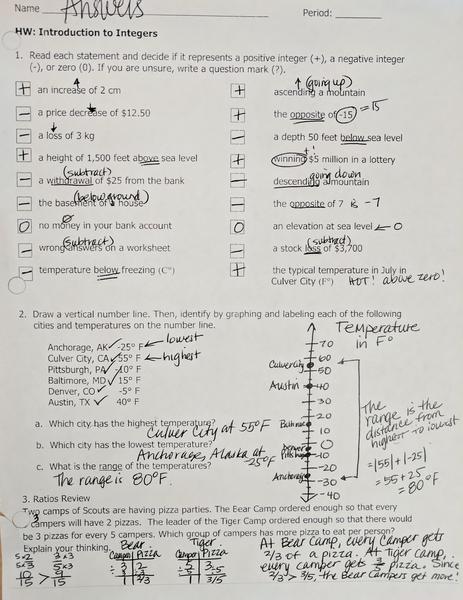 Name Answers Period:
HW: Introduction to Integers
1. Read each statement and decide if it represents a positive integer (+), a negative integer
(-), or zero (0). If you are unsure, write a question mark (?).
+ an increase of 2 cm
− a price decrease of $12.50
− a loss of 3 kg
+ a height of 1,500 feet above sea level
(subtract)
− a withdrawal of $25 from the bank
(below ground)
− the basement of a house
0 no money in your bank account
(subtract)
− wrong answers on a worksheet
− temperature below freezing (C°)
(going up)
+ ascending a mountain
+ the opposite of -15 = 15
− a depth 50 feet below sea level
+ winning $5 million in a lottery
going down
− descending a mountain
− the opposite of 7 is -7
0 an elevation at sea level ← 0
(subtract)
− a stock loss of $3,700
+ the typical temperature in July in
Culver City (F°) HOT! above zero!
2. Draw a vertical number line. Then, identify by graphing and labeling each of the following
cities and temperatures on the number line.
Anchorage, AK ✓ -25° F ← lowest
Culver City, CA ✓ 55° F ← highest
Pittsburgh, PA ✓ -10° F
Baltimore, MD ✓ 15° F
Denver, CO ✓ -5° F
Austin, TX ✓ 40° F
a. Which city has the highest temperature?
Culver City at 55°F
b. Which city has the lowest temperature?
Anchorage, Alaska at -25°F
c. What is the range of the temperatures?
The range is 80°F.
Temperature
in F°
70
60
Culver City 50
Austin 40
30
20
10
Denver 0
-10
-20
Anchorage -30
-40
The
range is the
distance from
highest to lowest
= |55| + |-25|
= 55 + 25
= 80°F
3. Ratios Review
Two camps of Scouts are having pizza parties. The Bear Camp ordered enough so that every
3 campers will have 2 pizzas. The leader of the Tiger Camp ordered enough so that there would
be 3 pizzas for every 5 campers. Which group of campers has more pizza to eat per person?
Explain your thinking.
5×2 3×3
5×3 5×3
10 > 9
15 15
Bear
Camper Pizza
3 2
1 2/3
Tiger
Camper Pizza
5 3
1 3/5
At Bear Camp, every camper gets
2/3 of a pizza. At Tiger Camp,
every camper gets 3/5 pizza. Since
2/3 > 3/5, the Bear Campers get more!